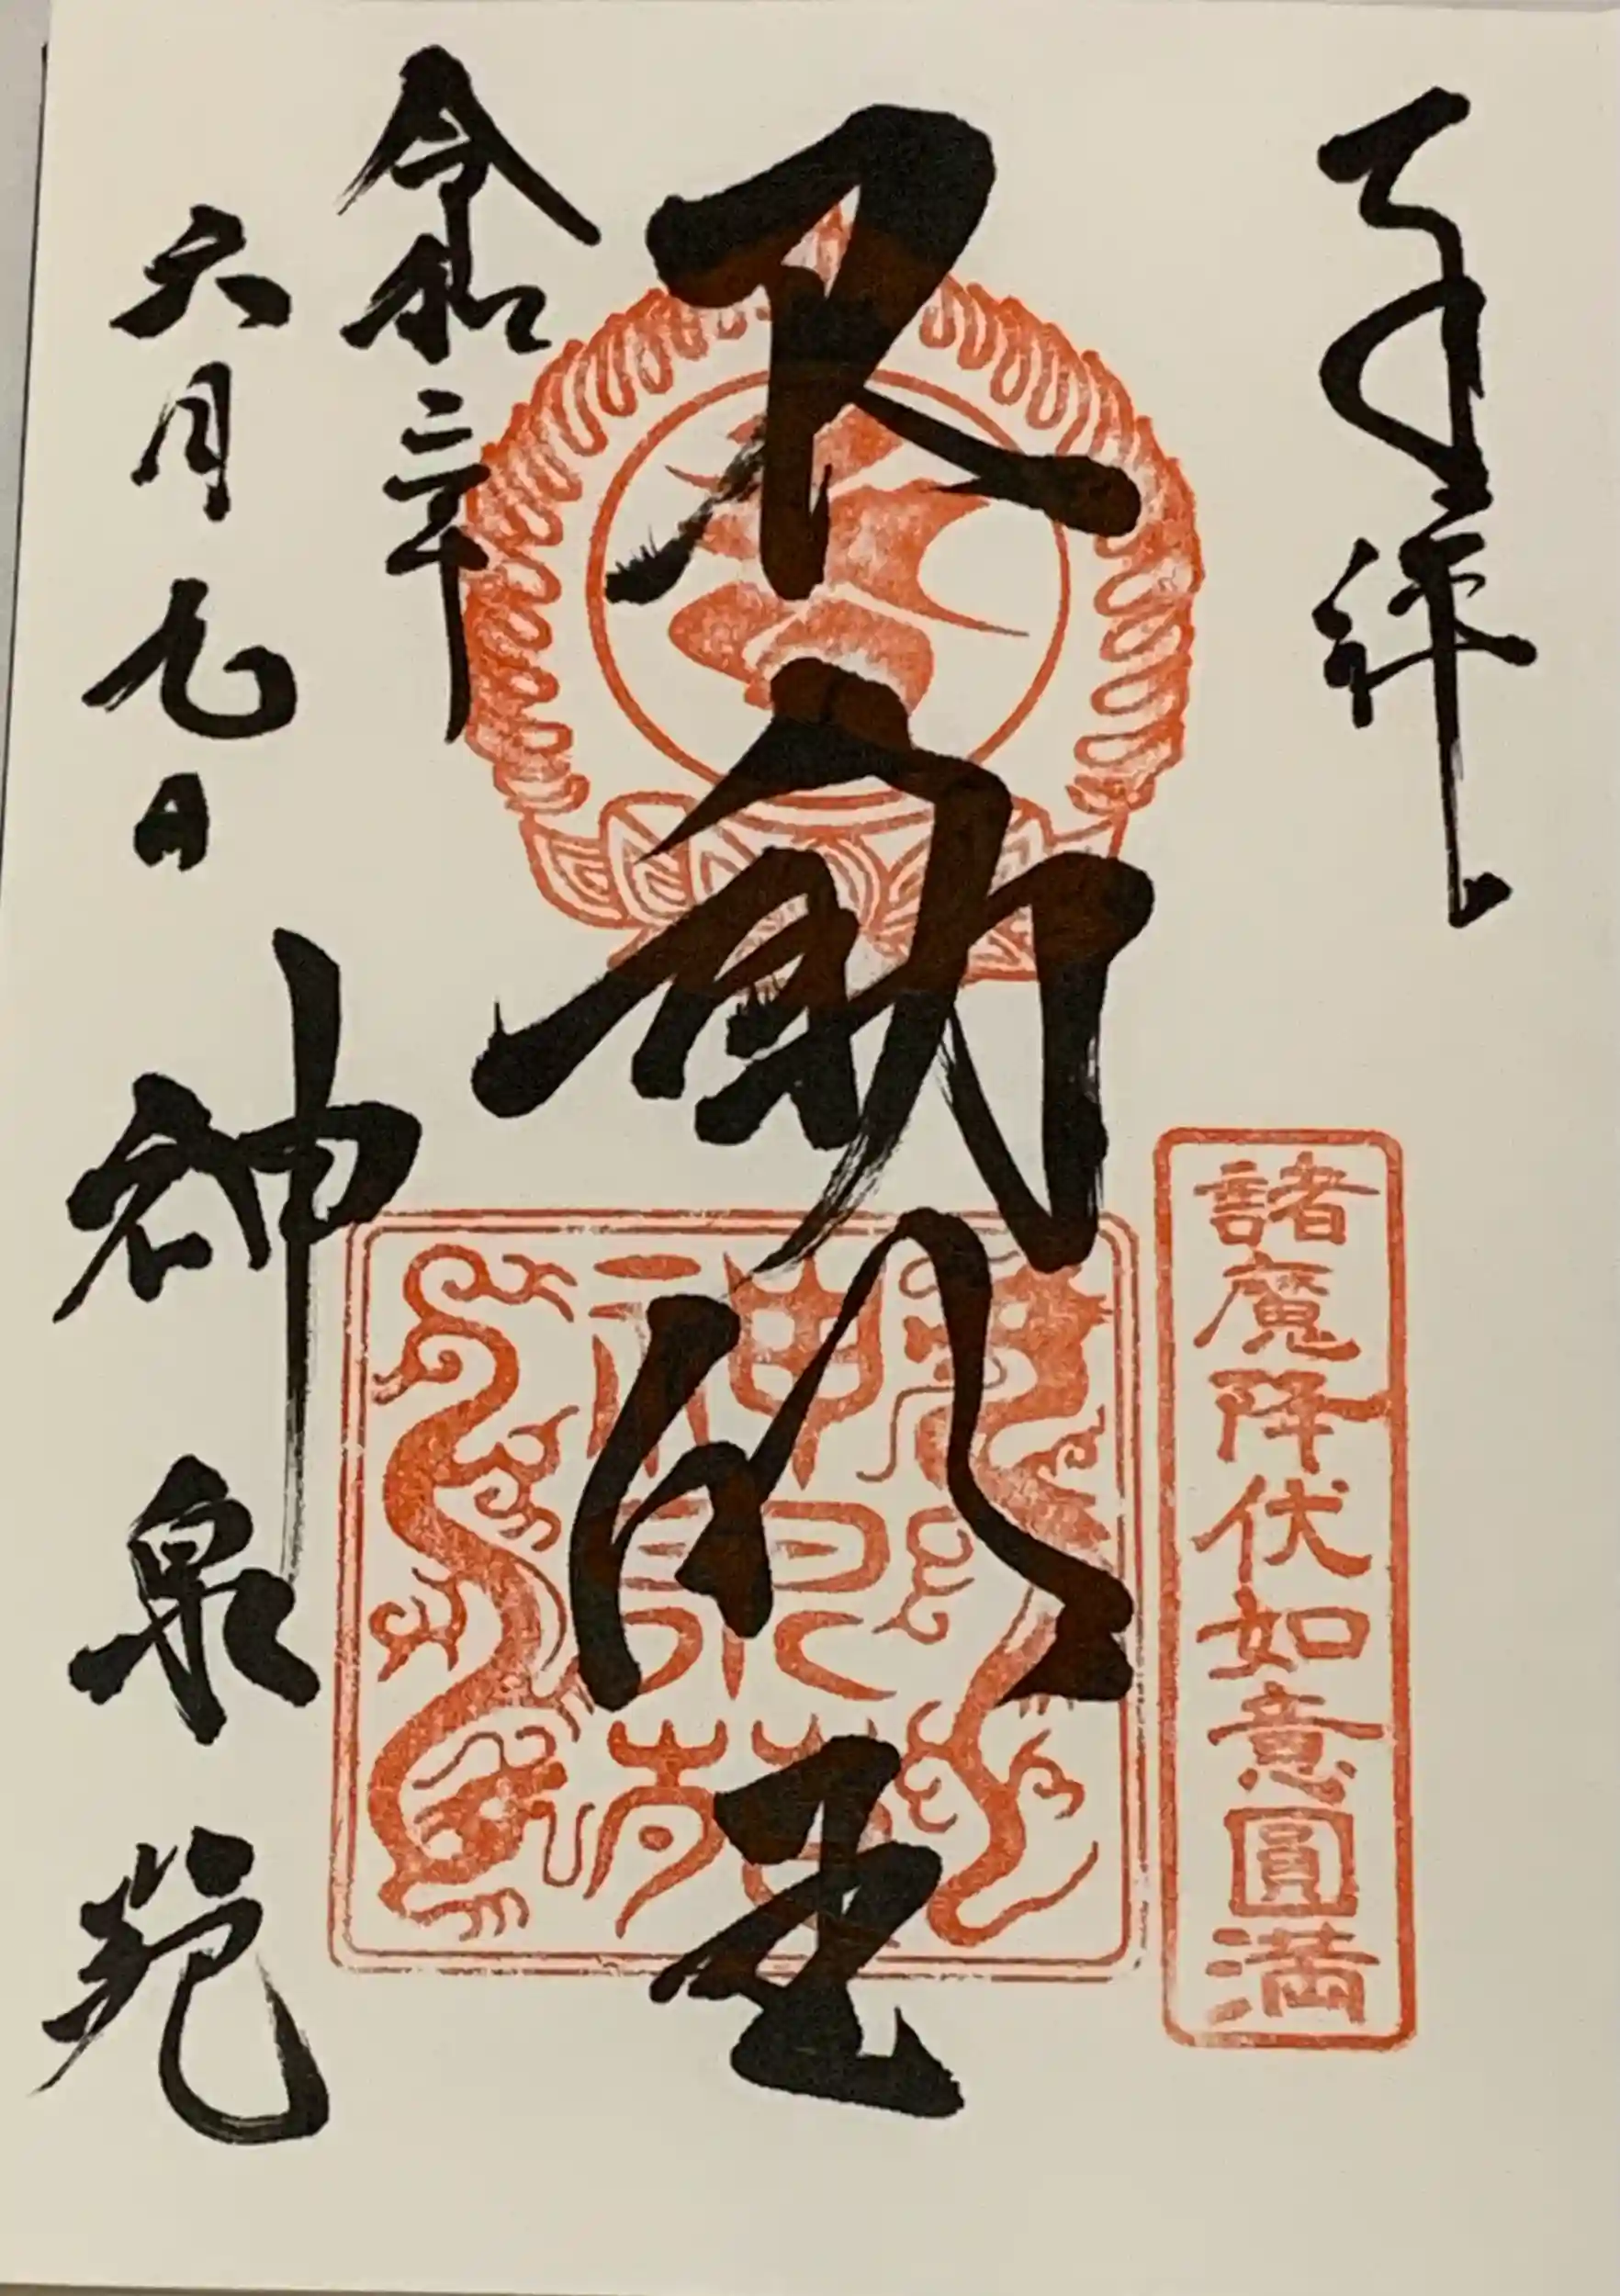 奉拝
諸魔降伏如意圓満
不動明王
神泉苑
令和三年
六月九日
神泉苑